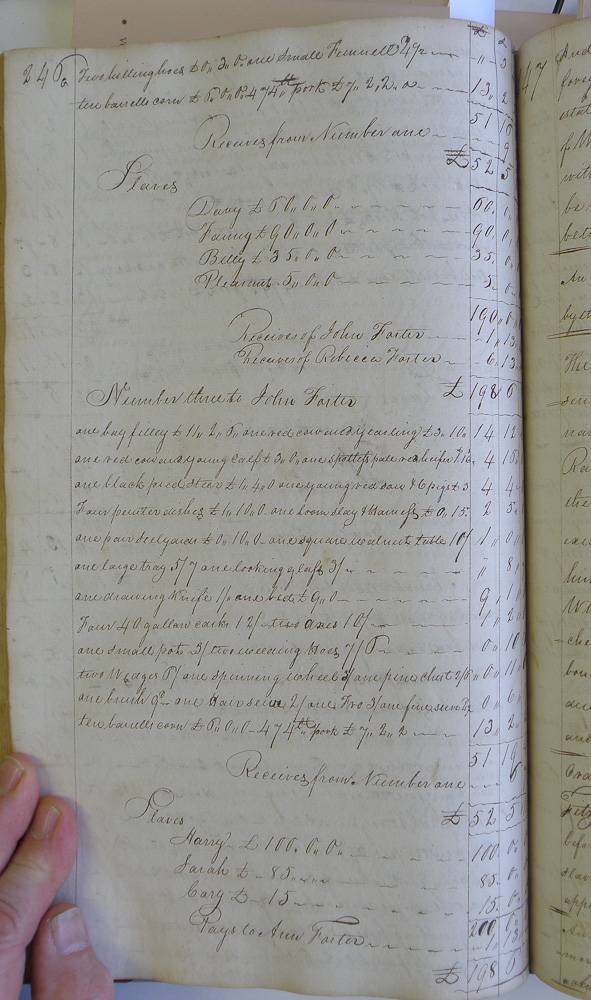 246
£ s
Two hilling hoes £0,,3,,0. one Small Funnell 4½ " 3
ten barells corn £6.,0,,0. 474 lb pork £7,,2,,2. 13,, 2
51 16
Receives from Number one 9
£ 52 5
Slaves
Davy £60,,0,,0 60. 0
Fanny £90,0,0 90. 0
Billy £35.,0,,0 35. 0
Pleasant 5,,0,,0 5. 0
190 0
Receives of John Foster 1 13
Receives of Rebecca Foster 6. 13
£ 198 6
Number three to John Foster
one bay filley £11,,2,,6, one red cow and yearling £3,,10. 14 12
one red cow and young calf £3,,0,, one heifer 4 16
one black pied Steer £1,,4,,0 one young red sow & 6 pigs £3 4 4
Four pewter dishes £1,,10,,0. one loom slay & Harness £0,,15. 2 5
one pair Steelyards £0,,10,,0 one square walnut table 10/ 1 0
one large tray 5/7 one looking glass 3/ " 8
one drawing Knife 1/ one bed £9,,0 9 1
Four 40 gallon casks 12/ two axes 10/ 1 2
one small pot 3/ two weeding Hoes 7/6 0 10
two Wedges 6/ one spinning wheel 3/ one pine chest 2/6 0 11
one brush 9d one Hair seive 2/ one Fro 3/ one fine seive 0 6
ten barells corn £6,,0,,0 474 lb pork £7,,2,,2 13 2
51 16
Receives from Number one
£ 52 5
Slaves
Harry £100.,0,,0. 100 0
Sarah £85. 85. 0
Cary £15 15. 0
200 0
Pays to Ann Foster 1 13
£ 198 6
47
And
of W
with
be
bet
An
by th
The
sen
nam
Ra
the
exe
him
Wi
che
bou
and
befo
slav
app
mor